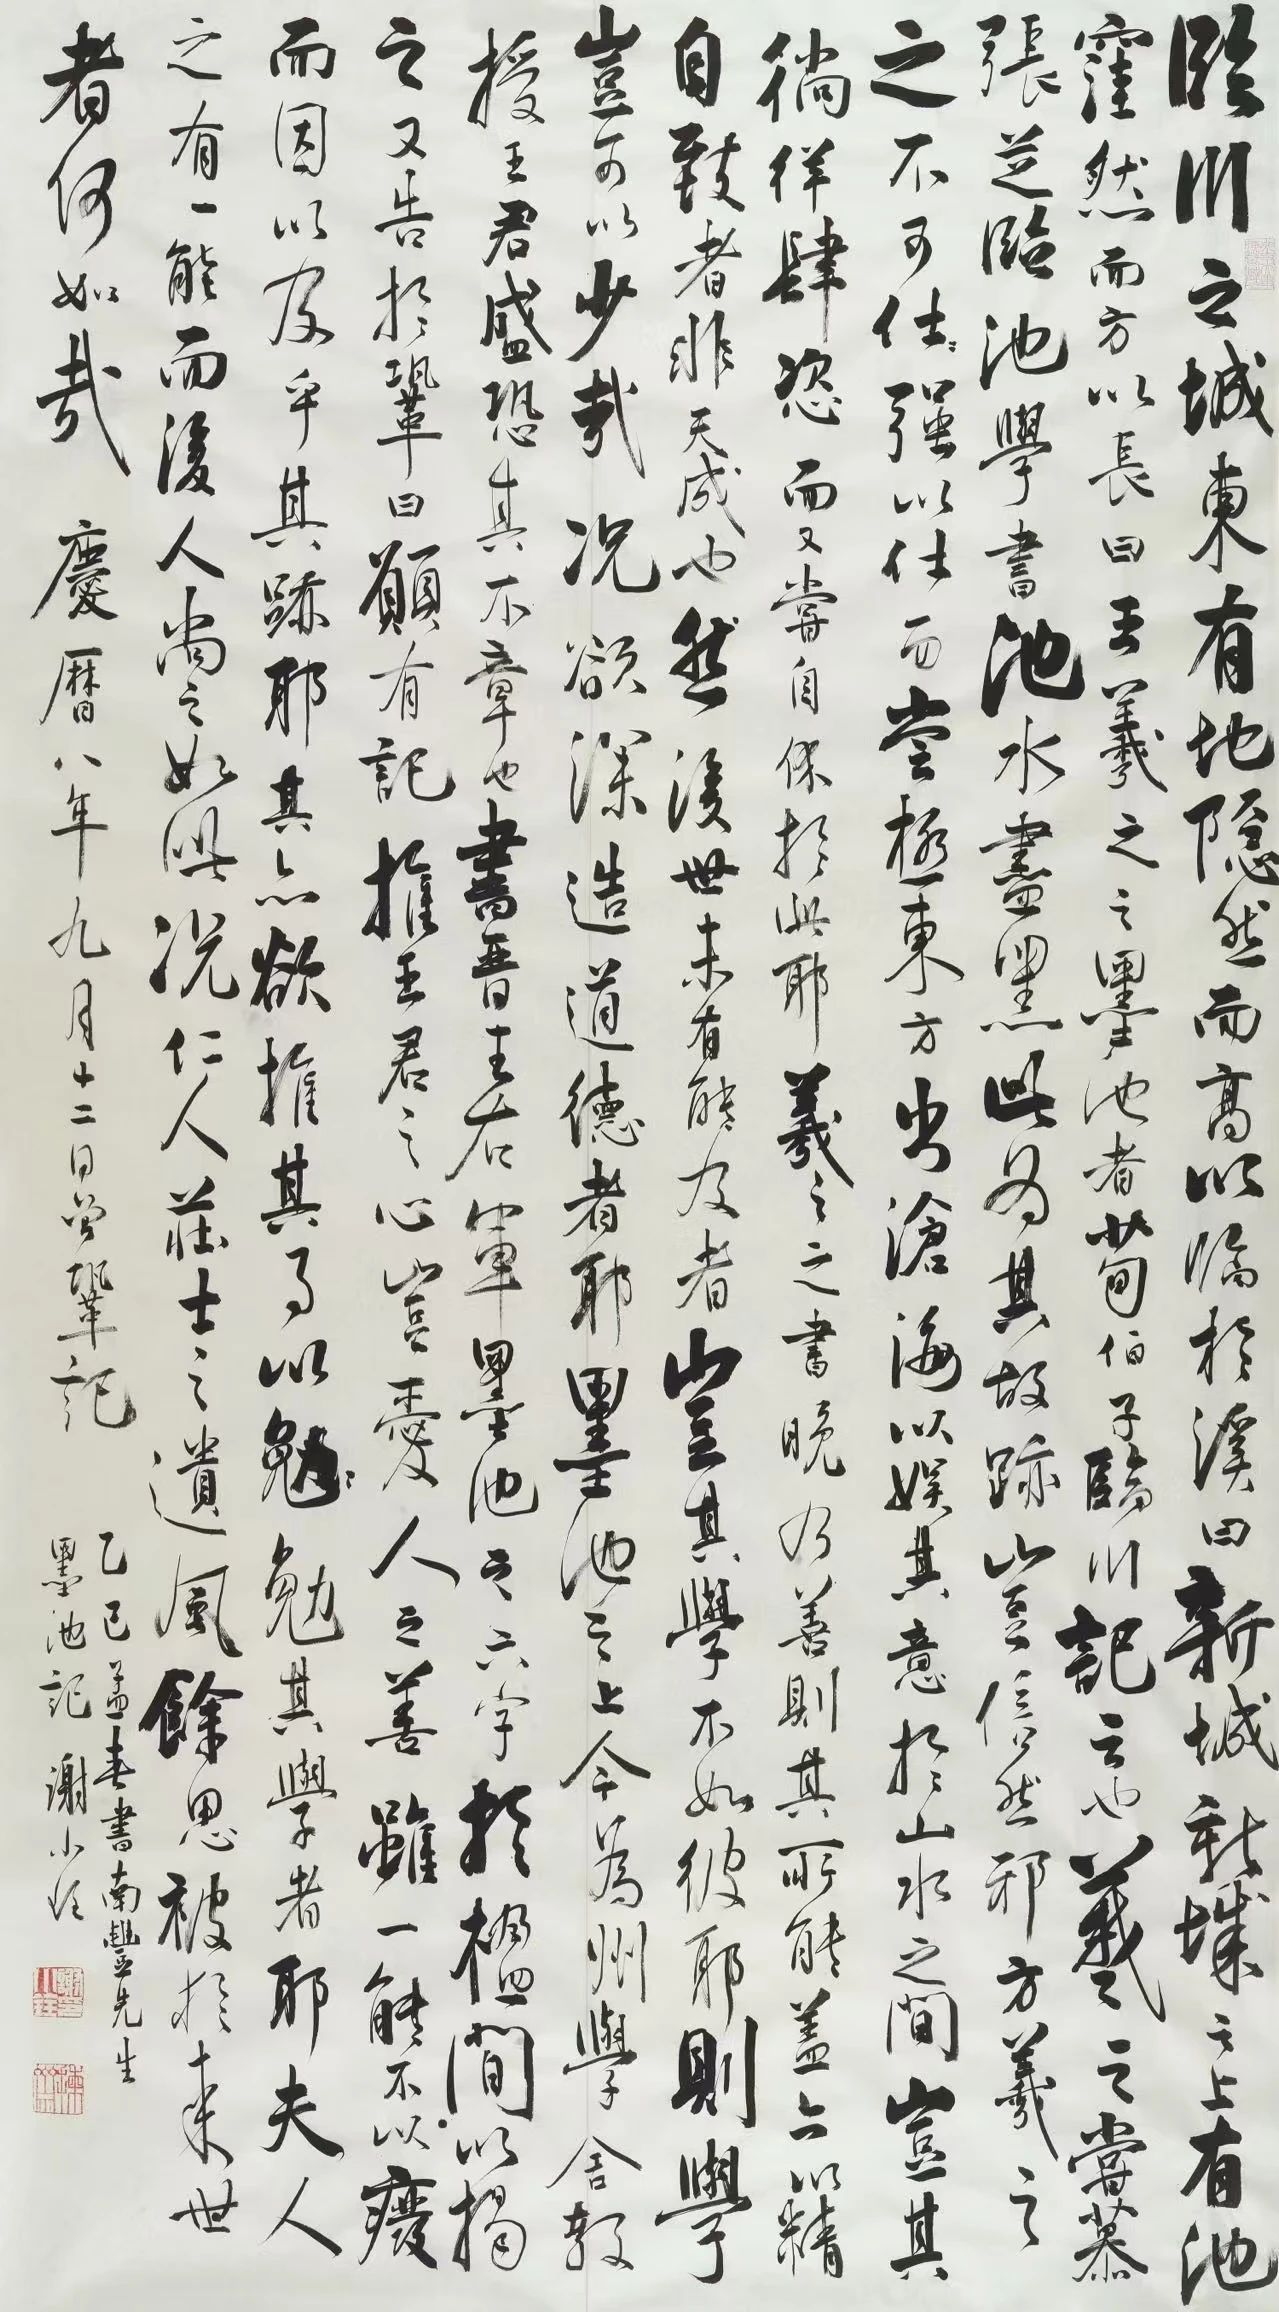 臨川之城東有地隱然而高以臨於溪曰新城新城之上有池
窪然而方以長曰王羲之之墨池者荀伯子臨川記云也羲之嘗慕
張芝臨池學書池水盡黑此為其故跡豈信然邪方羲之
之不可仕強以仕而嘗極東方出滄海以娛其意於山水之間豈其
徜徉肆恣而又嘗自休於此耶羲之之書晚乃善則其所能蓋亦以精
自致者非天成也然後世未有能及者豈其學不如彼耶則學
豈可以少哉況欲深造道德者耶墨池之上今為州學舍教
授王君盛恐其不章也書晉王右軍墨池之六字於楹間以揭
之又告於鞏曰願有記推王君之心豈愛人之善雖一能不以廢
而因以及乎其跡耶其亦欲推其事以勉勉其學者耶夫人
之有一能而後人尚之如此況仁人莊士之遺風餘思被於來世
者何如哉 慶曆八年九月十二日曾鞏記
乙巳孟春書南豐先生
墨池記 謝小